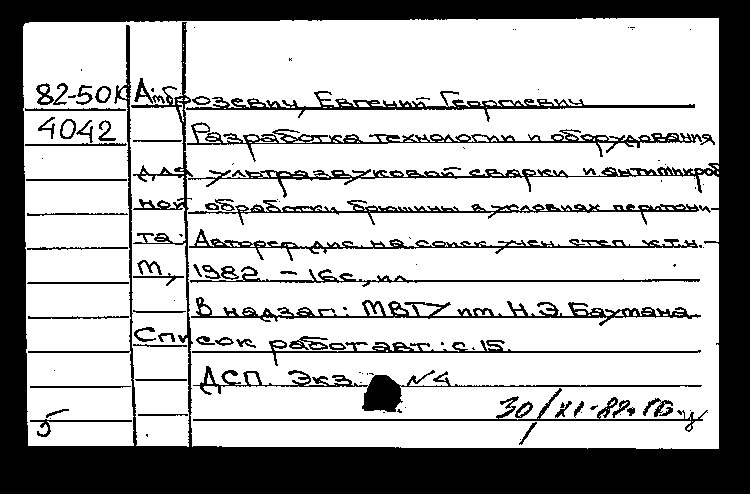 82-50К Амброзевич, Евгений Георгиевич
4042 Разработка технологии и оборудования
для ультразвуковой сварки и антимикроб
ной обработки брюшины в условиях перитони-
та: Автореф дис. на соиск учен. степ. к.т.н. -
М, 1982. - 16с., ил.
В надзаг: МВТУ им. Н.Э. Баумана
Список работ авт.: с. 15.
ДСП. Экз. №4.
30/XI-82г.
5